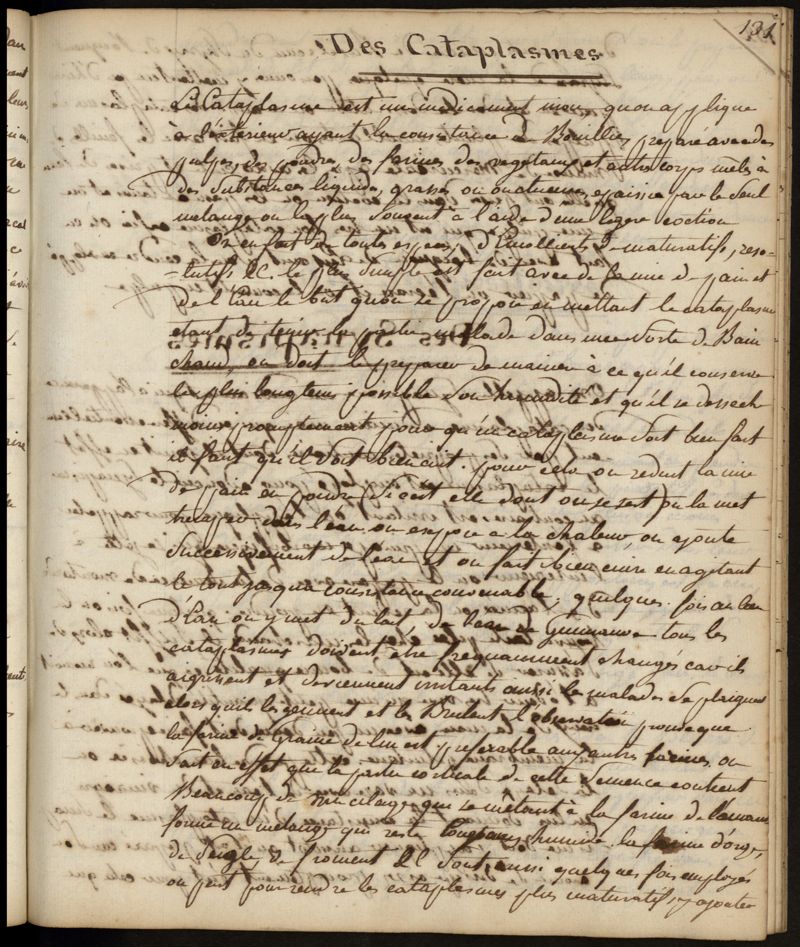 131
Des Cataplasmes
Le Cataplasme est un médicament mou quon applique
à l'exterieur ayant la consistance de Bouillie, preparé avec des
pulpes, des poudres, des farines des vegetaux et autres corps mêlés à
des Substances liquides, grasses ou onctueuses, epaissie par le seul
mélange ou le plus Souvent à l'aide d'une légère coction
On en fait de toutes especes, d'Emollients de maturatifs, reso-
-lutifs &C. le plus Simple est fait avec de la mie de pain et
de l'Eau le but qu'on se propose en mettant le cataplasme
etant de tenir la partie malade dans une Sorte de Bain
chaud, on doit le preparer de maniere à ce qu'il conserve
le plus longtems possible Son humidité et qu'il se desseche
moins promptement pour qu'un cataplasme Soit bien fait
il faut qu'il Soit bien cuit. pour cela on reduit la mie
de pain en poudre (Si c'est elle dont on se sert) on la met
tremper dans l'eau on expose à la chaleur, on ajoute
Successivement de l'eau et on fait bien cuire en agitant
le tout jusqu'a consistance convenable, quelques fois au lieu
d'Eau on y met du lait, de l'eau de Guimauve tous les
cataplasmes doivent être frequamment changés car ils
aigrissent et deviennent irritants aussi les malades Se plaignent
alors qu'il les gennent et les Brulent l'observation prouve que
la farine de Graine de lin est preferable aux autres farines on
Sait en effet que la partie corticale de cette Semence contient
Beaucoup de mucilage, qui se mêlant à la farine de l'amande
forme un mélange qui reste longtems humide. la farine d'orge,
de Seigle, de froment &C Sont aussi quelques fois employés
on peut pour rendre les cataplasmes plus maturatifs, y ajouter